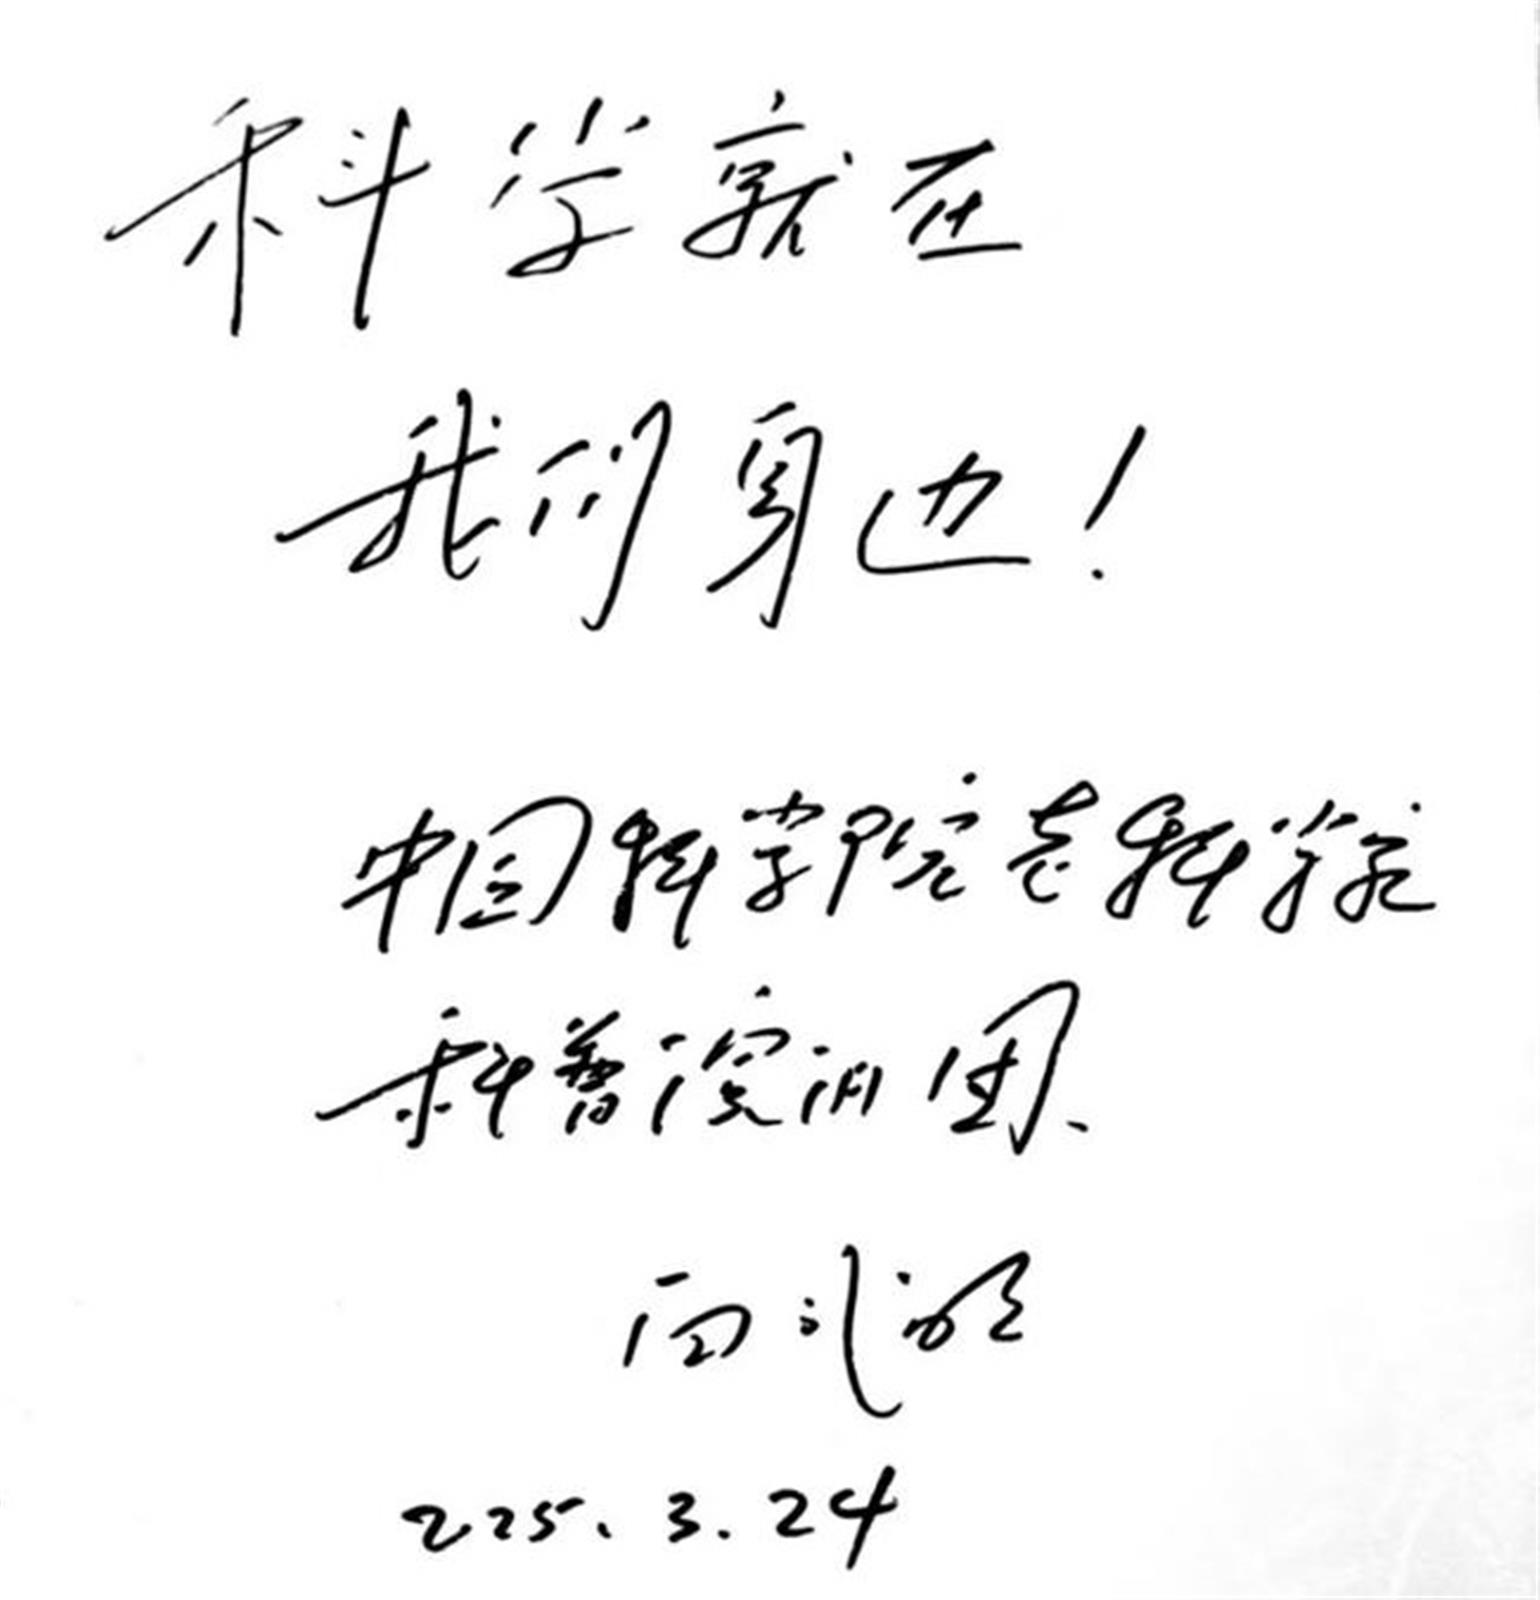 科学就在
我们身边！
中国科学院老科学家
科普演讲团
白武明
2025.3.24